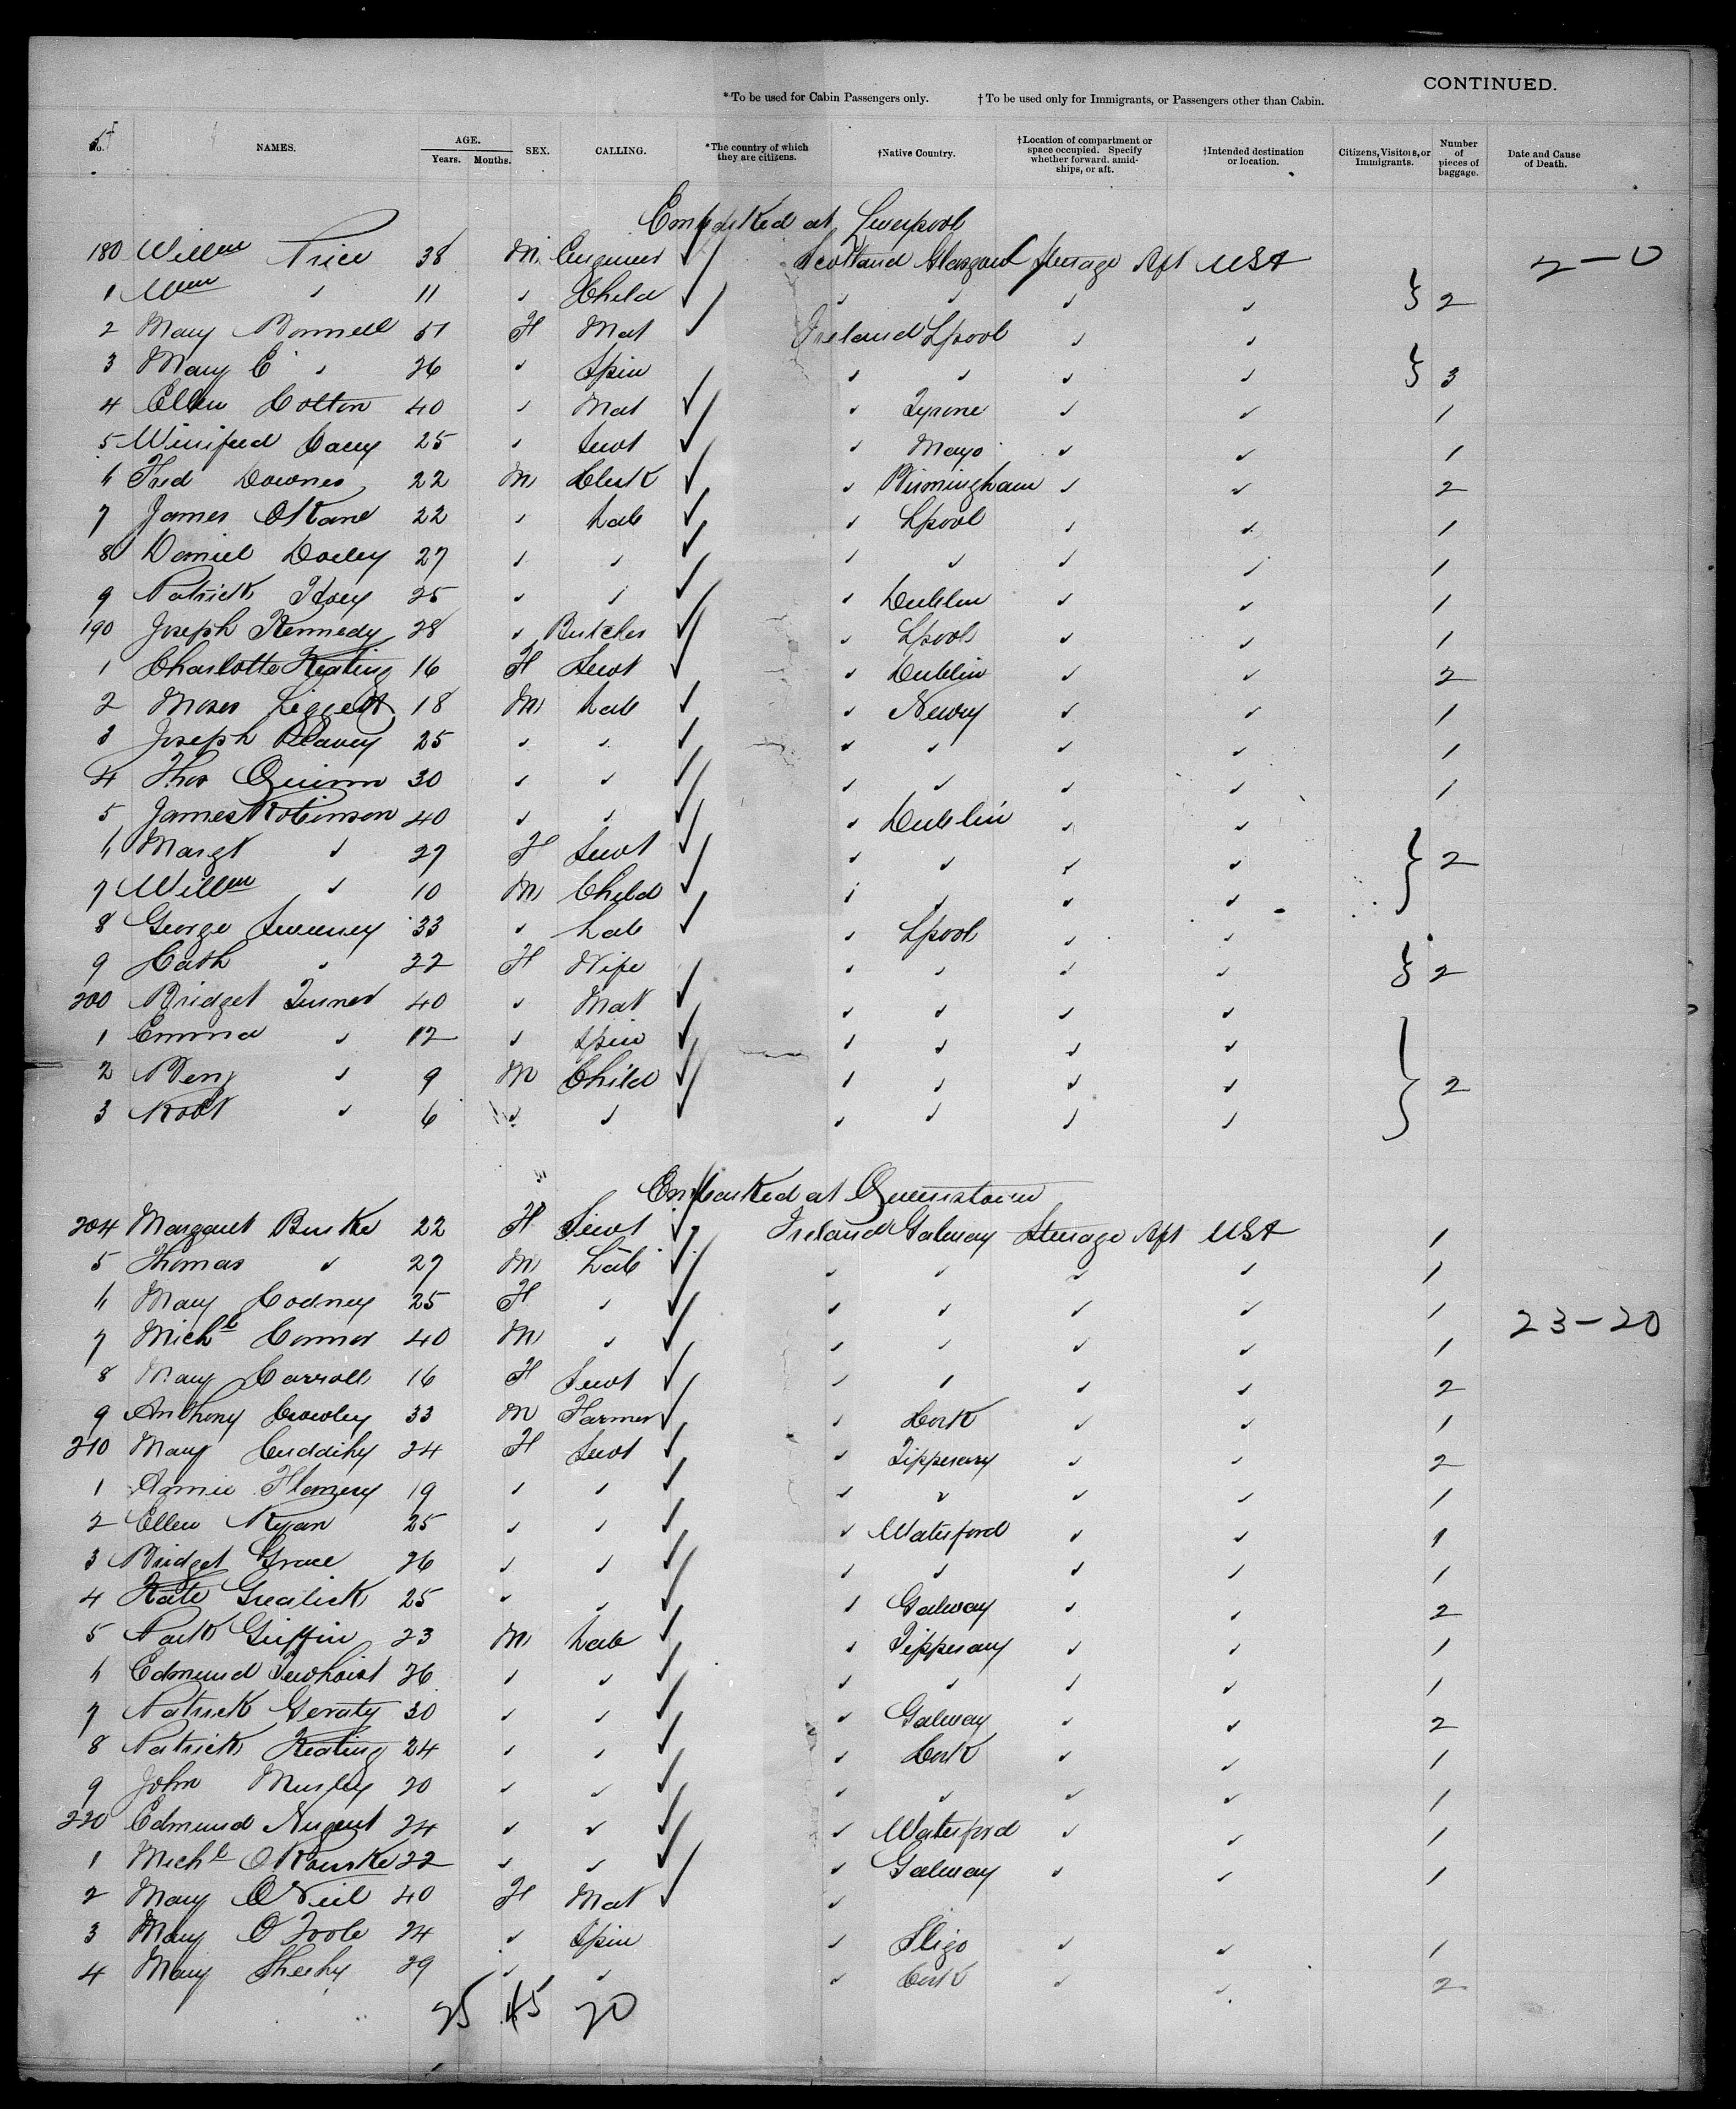 CONTINUED.
*To be used for Cabin Passengers only. †To be used only for Immigrants, or Passengers other than Cabin.
No. NAMES. AGE. Years. Months. SEX. CALLING. *The country of which they are citizens. †Native Country. †Location of compartment or space occupied. Specify whether forward, amidships, or aft. †Intended destination or location. Citizens, Visitors, or Immigrants. Number of pieces of baggage. Date and Cause of Death.
Embarked at Liverpool
180 Willm Price 38 M. Engineer ✓ Scotland Glasgow Steerage Aft USA 2-0
1 Wm " 11 " Child ✓ " " " " } 2
2 Mary Bonnell 51 F Mat ✓ Ireland Lpool " "
3 Mary E " 26 " Spin " " " " } 3
4 Ellen Colton 40 " Mat ✓ " Tyrone " " 1
5 Winifred Casey 25 " Servt ✓ " Mayo " " 1
6 Fred Downes 22 M Clerk ✓ " Birmingham " " 2
7 James OKane 22 " Lab ✓ " Lpool " " 1
8 Daniel Dorley 27 " " ✓ " " " " 1
9 Patrick Hoey 25 " " ✓ " Dublin " " 1
190 Joseph Kennedy 28 " Butcher ✓ " Lpool " " 1
1 Charlotte Keating 16 F Servt ✓ " Dublin " " 2
2 Moses Liggett 18 M Lab ✓ " Newry " " 1
3 Joseph 25 " " ✓ " " " " 1
4 Thos Quinn 30 " " ✓ " " " " 1
5 James Robinson 40 " " ✓ " Dublin " "
6 Margt " 27 F Servt ✓ " " " " } 2
7 Willm " 10 M Child ✓ " " " "
8 George Sweeney 33 " Lab ✓ " Lpool " "
9 Cath " 22 F Wife " " " " } 2
200 Bridget Turner 40 " Mat ✓ " " " "
1 Emma " 12 " Spin ✓ " " " "
2 Benj " 9 M Child ✓ " " " " } 2
3 Robt " 6 " " ✓ " " " "
Embarked at Queenstown
204 Margaret Burke 22 F Servt ✓ Ireland Galway Steerage Aft USA 1
5 Thomas " 27 M Lab ✓ " " " " 1
6 Mary Codney 25 F " ✓ " " " " 1 23-20
7 Michl Connor 40 M " ✓ " " " " 1
8 Mary Carroll 16 F Servt ✓ " " " " 2
9 Anthony Crowley 33 M Farmer ✓ " Cork " " 1
210 Mary Cuddihy 24 F Servt ✓ " Tipperary " " 2
1 Annie Flannery 19 " " ✓ " " " " 1
2 Ellen Ryan 25 " " ✓ " Waterford " " 1
3 Bridget Grace 26 " " ✓ " " " " 1
4 Kate Grealish 25 " " ✓ " Galway " " 2
5 Patk Griffin 23 M Lab ✓ " Tipperary " " 1
6 Edmund 26 " " ✓ " " " " 1
7 Patrick Geraty 30 " " ✓ " Galway " " 2
8 Patrick Keating 24 " " ✓ " Cork " " 1
9 John 20 " " ✓ " " " " 1
220 Edmund Nugent 24 " " ✓ " Waterford " " 1
1 Michl O'Rourke 22 " " ✓ " Galway " " 1
2 Mary O'Neil 40 F Mat ✓ "
3 Mary O'Toole 24 " Spin " Sligo " " 1
4 Mary Sheehy 29 " " " Cork " " 2
25 45 20